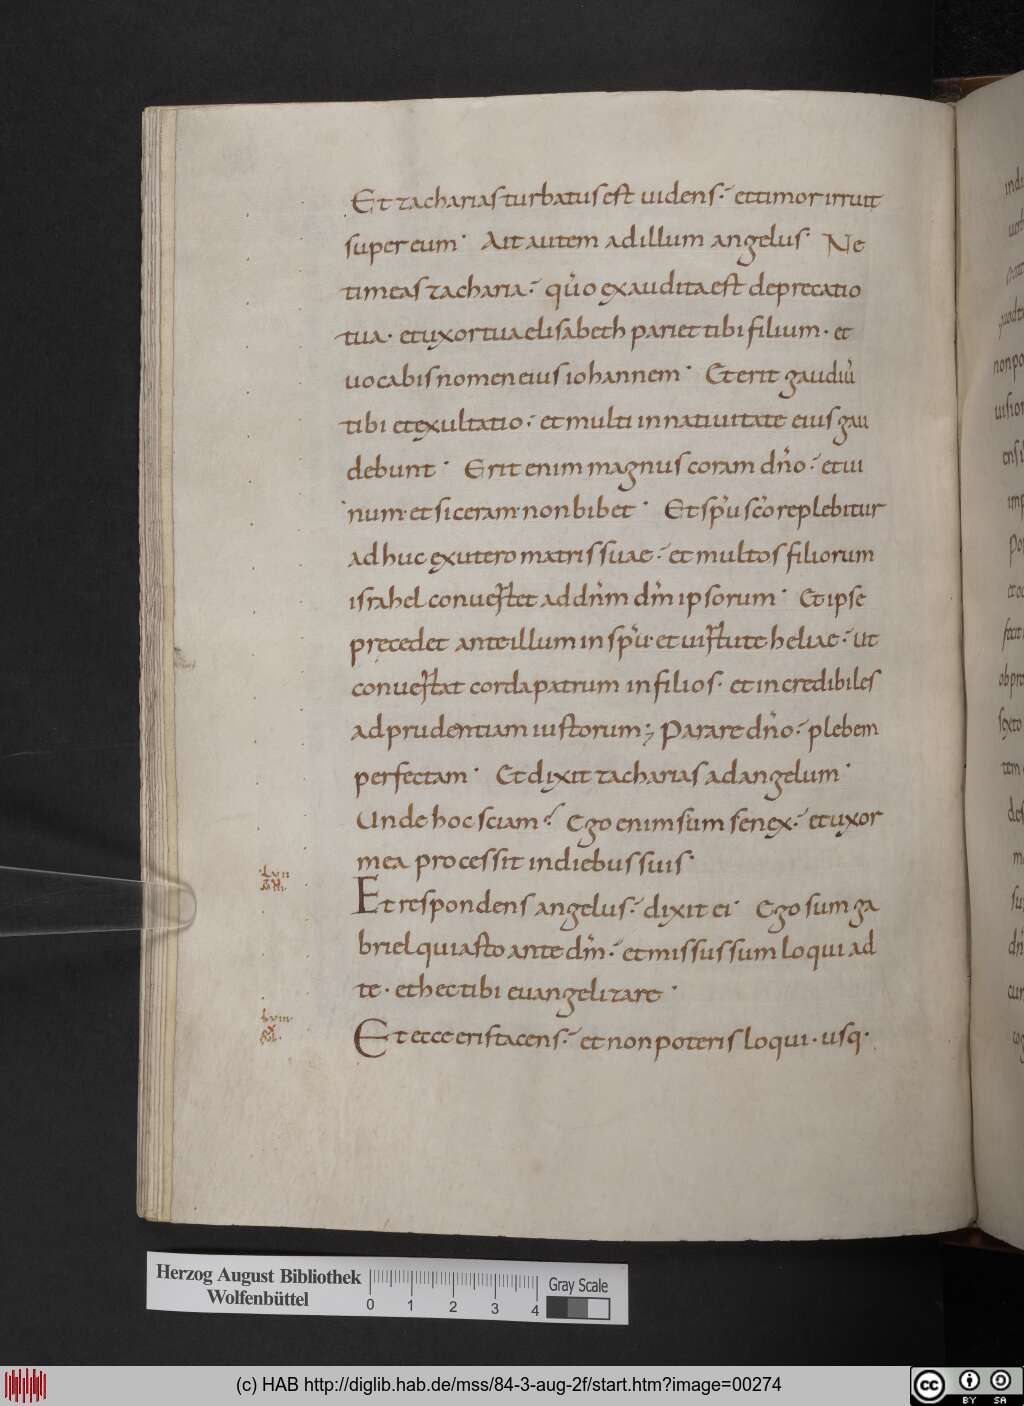 Et zacharias turbatus est uidens· et timor irruit
super eum· Ait autem ad illum angelus· Ne
timeas zacharia· quo exaudita est deprecatio
tua· et uxor tua elisabeth pariet tibi filium· et
uocabis nomen eius iohannem· Et erit gaudiu
tibi et exultatio· et multi in natiuitate eius gau
debunt· Erit enim magnus coram dño· et ui
num· et siceram· non bibet· Et spu sco replebitur
adhuc ex utero matris suae· et multos filiorum
israhel conuertet ad dñm dm̃ ipsorum· Et ipse
pręcedet ante illum in spu· et uirtute heliae· ut
conuertat corda patrum in filios· et incredibiles
ad prudentiam iustorum; Parare dño· plebem
perfectam· Et dixit zacharias ad angelum·
Unde hoc sciam? Ego enim sum senex· et uxor
mea processit in diebus suis·
Et respondens angelus· dixit ei· Ego sum ga
briel qui asto ante dm̃· et missus sum loqui ad
te· et hec tibi euangelizare·
Et ecce eris tacens· et non poteris loqui· usq·
Herzog August Bibliothek
Wolfenbüttel
0 1 2 3 4
Gray Scale
(c) HAB http://diglib.hab.de/mss/84-3-aug-2f/start.htm?image=00274
cc BY SA